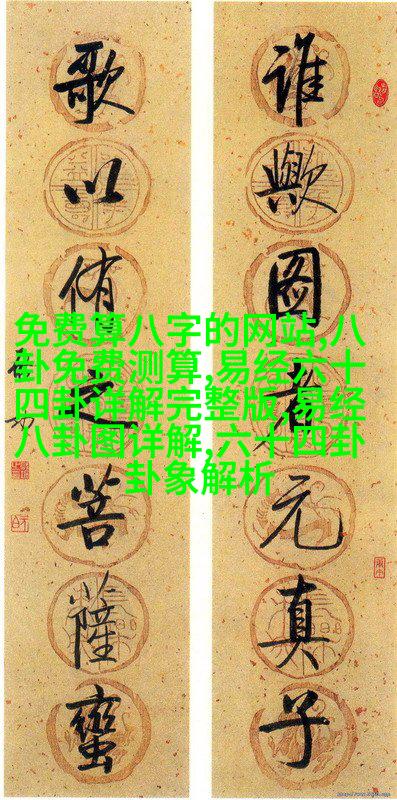 谁歟图者元真子
歌以侑之菩薩蠻
免费算八字的网站,八
卦免费测算,易经六十
四卦详解完整版,易经
八卦图详解,六十四卦
卦象解析